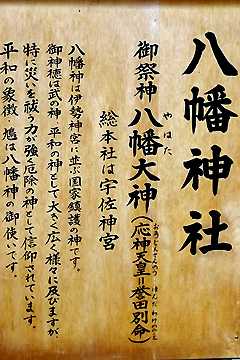 八幡神社
御祭神 八幡大神（応神天皇＝誉田別命）
やはた
おうじんてんのう ほんだ わけのみこと
総本社は宇佐神宮
八幡神は伊勢神宮に並ぶ国家鎮護の神です。
御神徳は武の神、平和の神として、大きく広く様々に及びますが、
特に災いを祓う力が強く厄除の神として信仰されています。
平和の象徴・鳩は八幡神の御使いです。